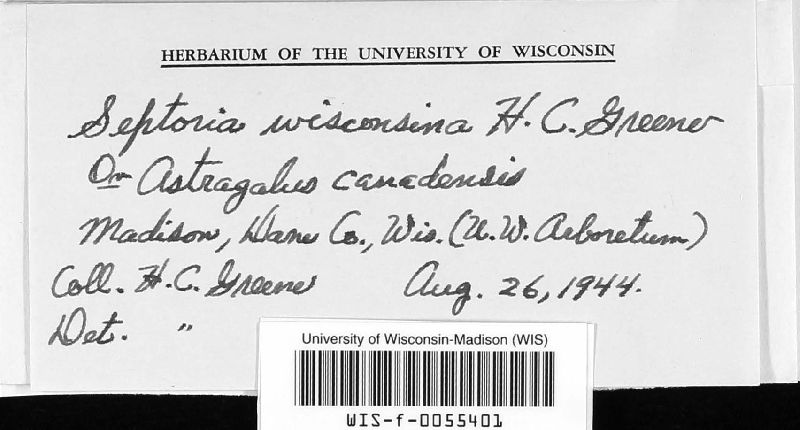 HERBARIUM OF THE UNIVERSITY OF WISCONSIN
Septoria wisconsina H. C. Greene
On Astragalus canadensis
Madison, Dane Co., Wis. (U.W. Arboretum)
Coll. H. C. Greene Aug. 26, 1944.
Det. "
University of Wisconsin-Madison (WIS)
WIS-f-0055401